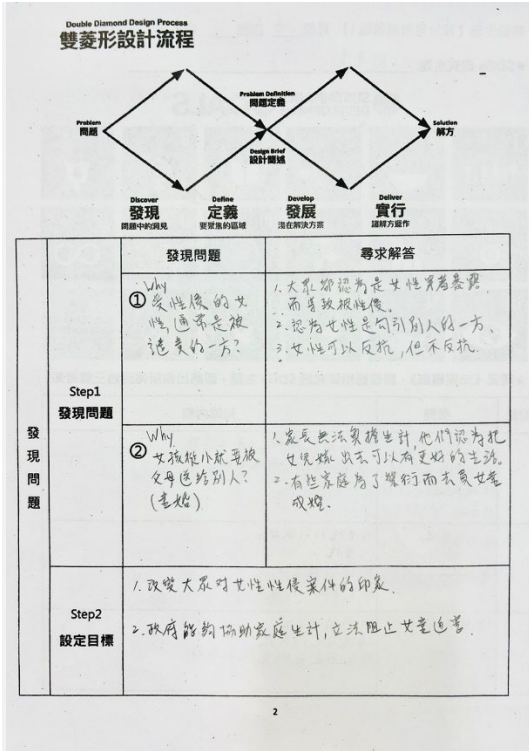 Double Diamond Design Process
雙菱形設計流程
Problem
問題
Problem Definition
問題定義
Design Brief
設計簡述
Solution
解方
Discover
發現
問題中的洞見
Define
定義
要聚焦的區域
Develop
發展
潛在解決方案
Deliver
實行
讓解方運作
發現問題
尋求解答
發現問題
Step1
發現問題
Why
① 受性侵的女
性,通常是被
譴責的一方?
1. 大眾都認為是女性穿著暴露
而導致被性侵。
2. 認為女性是勾引別人的一方。
3. 女性可以反抗,但不反抗.
Why
② 女孩從小就要被
父母送給別人?
(童婚)
1. 家長無法負擔生計,他們認為把
女兒嫁出去可以有更好的生活。
2. 有些家庭為了繁衍而去買女童
成婚.
Step2
設定目標
1. 改變大眾對女性性侵案件的印象.
2. 政府能夠協助家庭生計,立法阻止女童迫害.
2